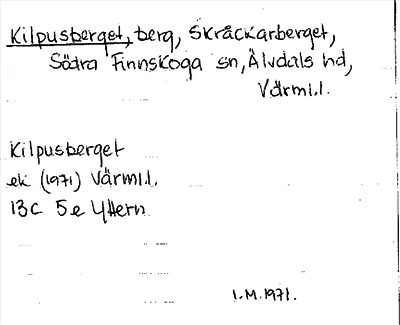 Kilpusberget, berg, Skråckarberget,
Södra Finnskoga sn, Älvdals hd,
Värml.
Kilpusberget
ek (1971) Värml.
13C 5e Yttern
I.M. 1971.